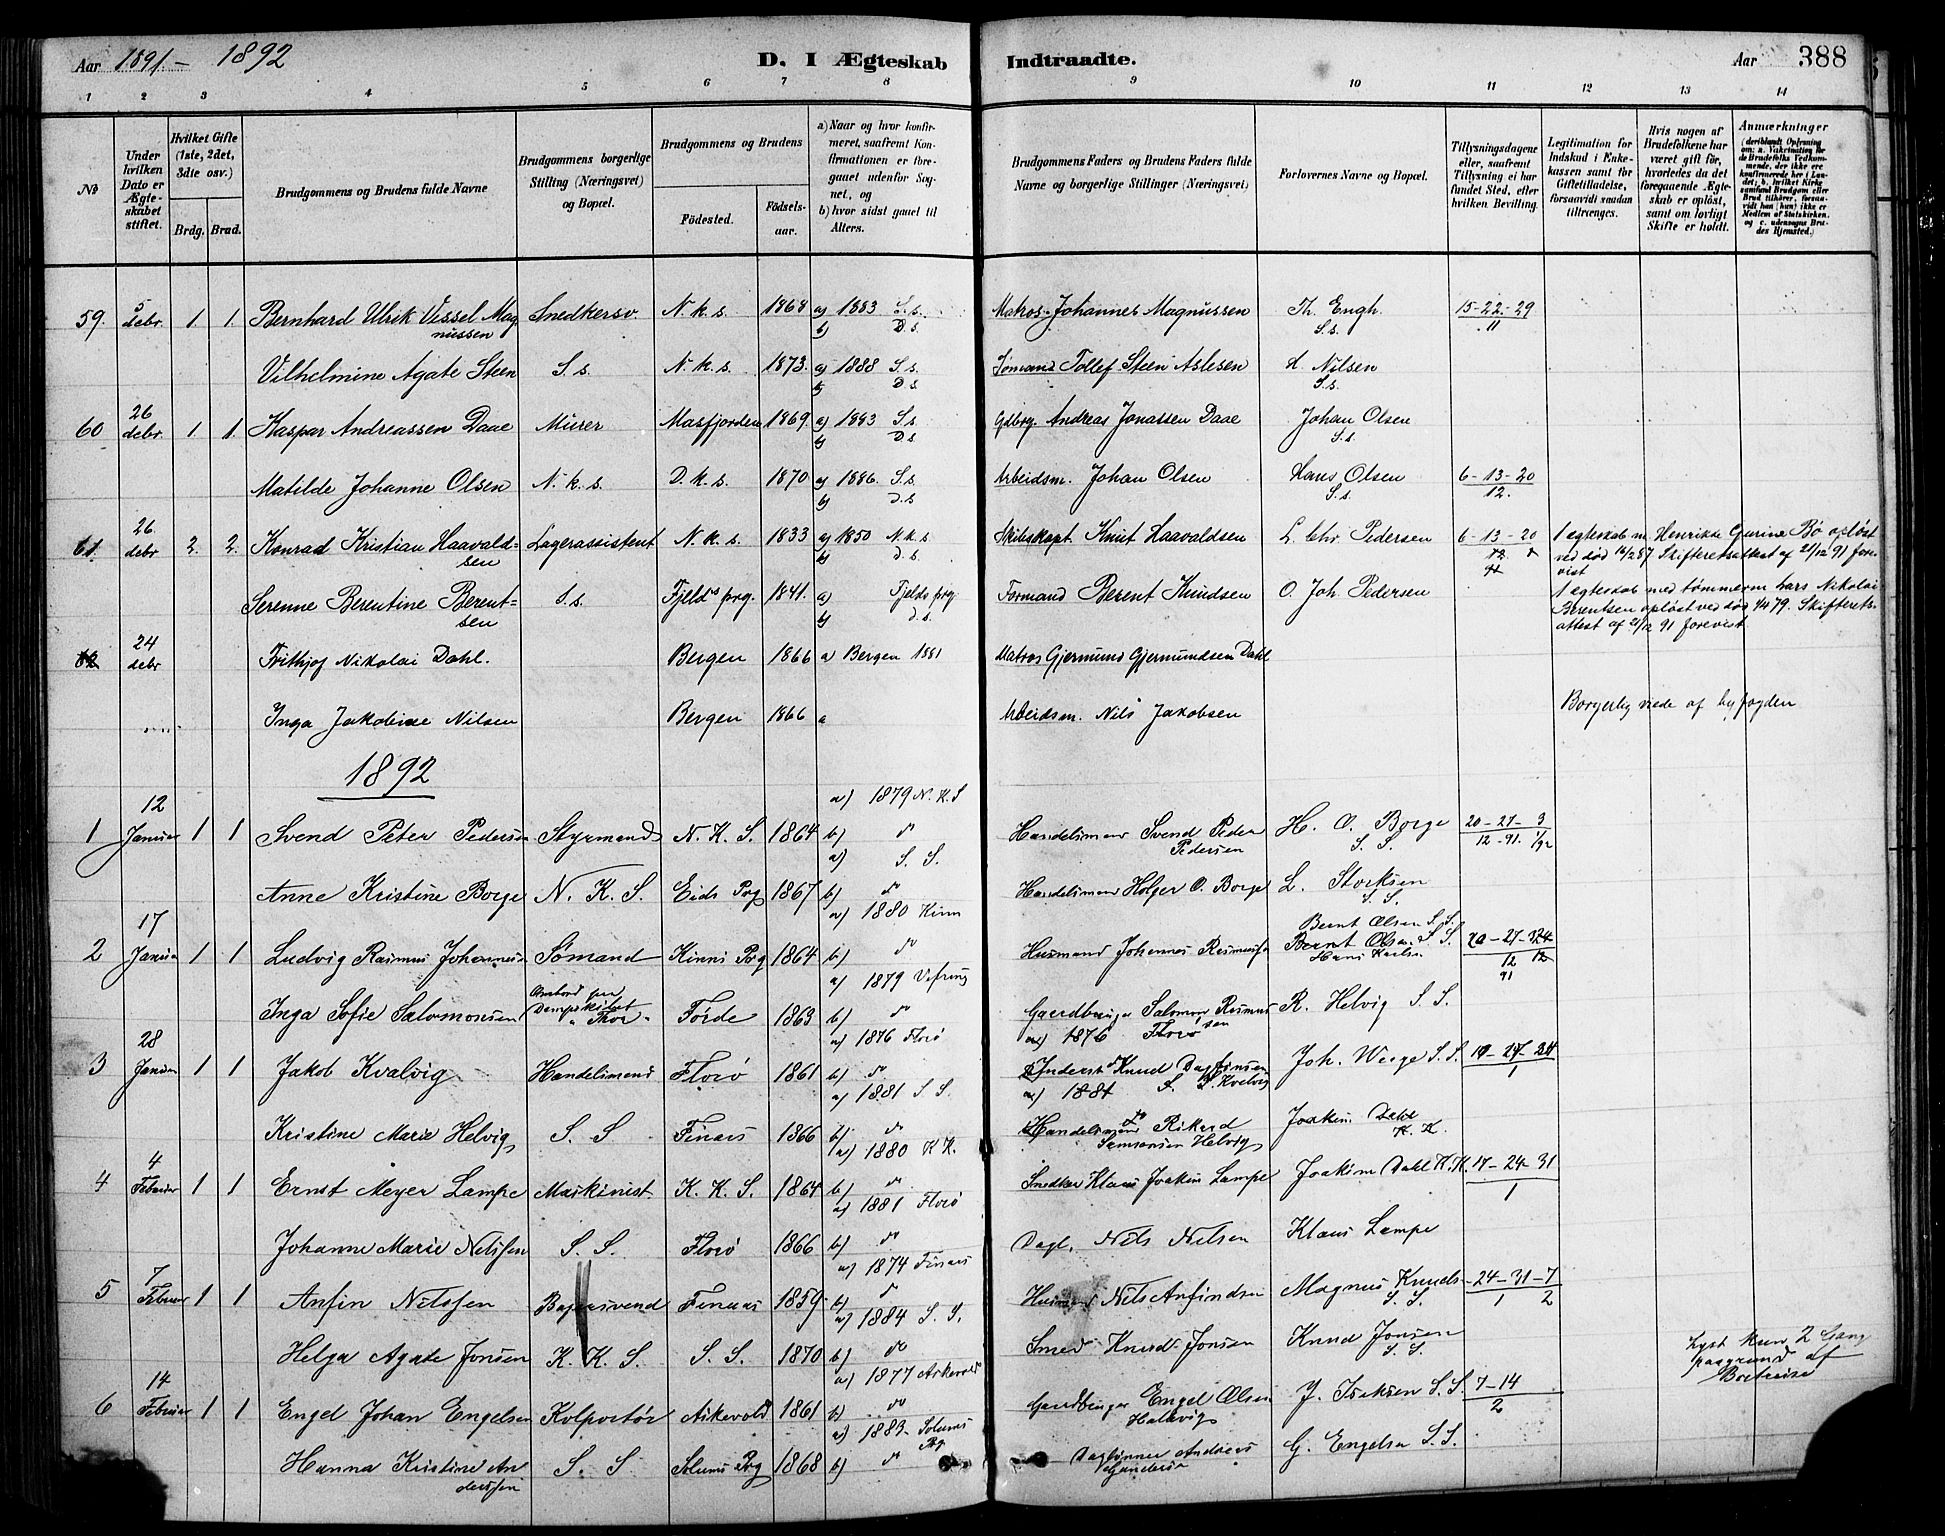 Aar 1891 - 1892
D. I Ægteskab
Indtraadte.
Aar 388
1 2 3 4 5 6 7 8 9 10 11 12 13 14
No
Under hvilken Dato er Ægteskabet stiftet.
Hvilket Gifte (1ste, 2det, 3die osv.)
Brdg. Brud.
Brudgommens og Brudens fulde Navne
Brudgommens borgerlige Stilling (Næringsvei) og Bopæl.
Brudgommens og Brudens
Fødested. Fødselsaar.
a) Naar og hvor konfirmeret, saafremt Konfirmationen er foregaaet udenfor Sognet, og
b) hvor sidst gaaet til Alters.
Brudgommens Faders og Brudens Faders fulde Navne og borgerlige Stillinger (Næringsvei)
Forlovernes Navne og Bopæl.
Tillysningsdagene eller, saafremt Tillysning ei har fundet Sted, efter hvilken Bevilling.
Legitimation for Indskud i Enkekassen samt for Giftetilladelse, forsaavidt saadan tiltrænges.
Hvis nogen af Brudefolkene har været gift før, hvorledes da det foregaaende Ægteskab er opløst, samt om lovligt Skifte er holdt.
Anmærkninger
59. 5 debr. 1. 1. Bernhard Ulrik Vessel Magnussen Snedkersv. N. k. s. 1868 a) 1883 S. s. b) D. s. Matros Johannes Magnussen Th. Engh. S. s. 15-22-29 11
Vilhelmine Agate Steen S. s. N. k. s. 1873. a) 1888 S. s. b) D. s. Sømand Tollef Steen Aslesen Nilsen S. s.
60 26 debr. 1. 1. Kaspar Andreassen Daae Murer Masfjorden 1869. a) 1883 S. s b) D. s Gdbrg. Andreas Jonassen Daae Johan Olsen S. s.
Matilde Johanne Olsen N. k. s. D. k. s. 1870 a) 1886. S. s. b) D. s Arbeidsm. Johan Olsen Hans Olsen S. s. 6-13-20 12.
61. 26 debr 2. 2. Konrad Kristian Haavaldsen Lagerassistent N. k. s. 1833 a) 1850 N. k. s b) D. s. Skibskapt Knut Haavaldsen L. Chr. Pedersen 6-13-20 12 Ægteskab m. Henrikke Gurine Bø opløst ved død 14/2 87 Skifteretsattest af 21/12 91 forevist
Serenne Berentine Berentsen S. s. Fjelds prg. 1841. a) Fjelds prg b) D. s. Formand Berent Knudsen O. Joh. Pedersen Ægteskab med tømmerm. Lars Nikolai Berentsen opløst ved død 1/4 79. Skifteretsattest af 21/12 91 forevist
62 24 debr Frithjof Nikolai Dahl. Bergen 1866 a Bergen 1881 Matros Gjermund Gjermundsen Dahl
Inga Jakobine Nilsen Bergen 1866 a Arbeidsm. Nils Jakobsen Borgerlig viede af byfogden
1892
1 12 Januar 1 1 Svend Peter Pedersen Styrmand N. K. S. 1864 a) 1879 N. K. S b) do Handelsmand Svend Peder Pedersen H. O. Borge S. S. 20-27-3 12-91. 1/92
Anne Kristine Borge N. K. S. Eids Prg 1867 a) S. S. b) do Handelsmand Holger O. Borge L. Storksen S. S.
2 17 Januar 1 1 Ludvig Rasmus Johannesen Sømand Kinns Prg 1864 a) 1880 Kinn b) do Husmand Johannes Rasmussen Bernt Olsen S. S. Bernt Olsen S. S. Hans Karlsen 20-27-
Inga Sofie Salomonsen Ombord paa Dampskibet "Thor" Førde 1863 a) 1879 Vefring b) do Gaardbruger Salomon Rasmussen R. Helvig S. S.
3 28 Januar 1 1 Jakob Kvalvig Handelsmand Florø 1861 a) 1876 Florø b) do a) 1876 Florø Inderst Knud Dagfinsen Kvalvig Joh. Werge S. S. 1
Kristine Marie Helvig S. S Finaas 1866 a) 1881 S. S. b) do a) 1881 S. S. Handelsmand Rikard Samsonsen Helvig Joakim Dahl K. K.
4 4 Februar 1 1 Ernst Meyer Lampe Maskinist K. K. S. 1864 a) 1880 K K. b) do Snedker Klaus Joakim Lampe Joakim Dahl K. K. 17-24-31 1
Johanne Marie Nilssen S. S. Florø 1866 a) 1881 Florø b) do Dagl. Nils Nilsen Klaus Lampe
5 7 Februar 1 1 Anfin Nilssen Bagersvend Finaas 1859 a) 1874 Finaas b) do Husmand Nils Anfindsen Magnus Knudsen S. S. 24-31-7 1 2
Helga Agate Jonsen K. K. S. S. S. 1870 a) 1884 S. S. b) do Smed Knud Jonsen Knud Jonsen S. S.
Lyst kun 2 Gang paagrund af Bortreise
6 14 Februar 1 1 Engel Johan Engelsen Kolportør Askevold 1861 a) 1877 Askevold b) do Gaardbruger Engel Olsen Halvig J. Isaksen S. S. 7-14 2
Hanna Kristine Anderssen S. S Solums Prg 1868 a) 1883 Solums Prg b) do Daglønner Andreas Gundersen G. Engelsen S. S.